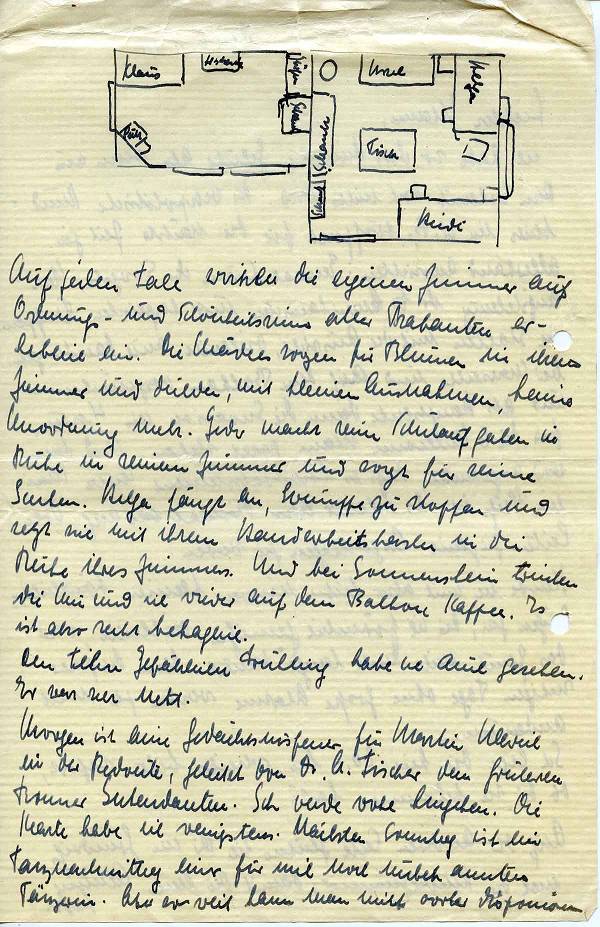 Klaus
Schrank
Ursel
Helga
Pult
Schrank
Tisch
Heidi
Auf jeden Fall wirken die eigenen Zimmer auf
Ordnungs- und Schönheitssinn aller Trabanten er-
hebend ein. Die Mädels sorgen für Blumen in ihrem
Zimmer und dulden, mit kleinen Ausnahmen, keine
Unordnung mehr. Jeder macht seine Schulaufgaben in
Ruhe in seinem Zimmer und sorgt für seine
Sachen. Helga fängt an, Strümpfe zu stopfen und
setzt sie mit ihrem Handarbeitskasten in die
Ruhe ihres Zimmers. Und bei Sonnenschein trinken
die und ich wieder auf dem Balkon Kaffee. Es
ist also recht behaglich.
Den Film Gefährlicher Frühling habe ich auch gesehen.
Er war sehr nett.
Morgen ist eine Gedächtnisfeier für Martin
in der Redoute, geleitet von Dr. A. Fischer dem früheren
Bonner Intendanten. Ich werde wohl hingehen. Die
Karte habe ich wenigstens. Nächsten Sonntag ist ein
Tanznachmittag einer für mich noch unbekannten
Tänzerin. Aber so weit kann man nicht vorher disponieren